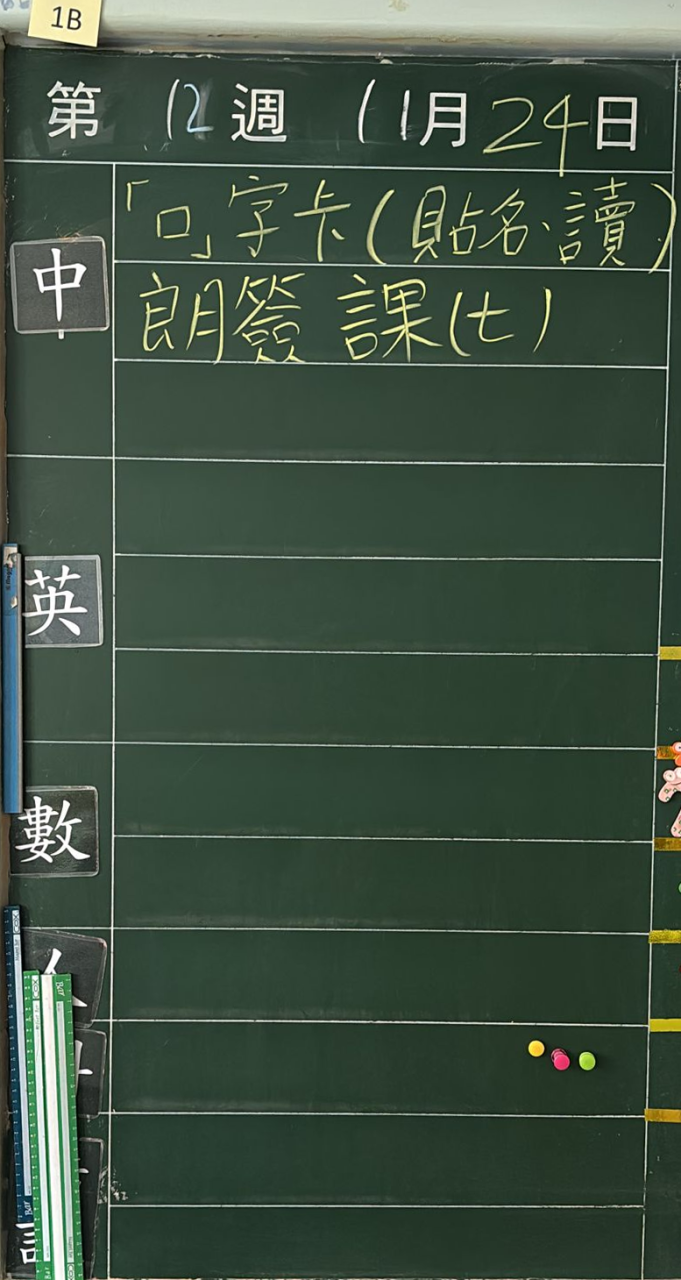 1B
第 12 週 11 月 24 日
中
「口」字卡(貼名、讀)
朗簽 課(七)
英
數